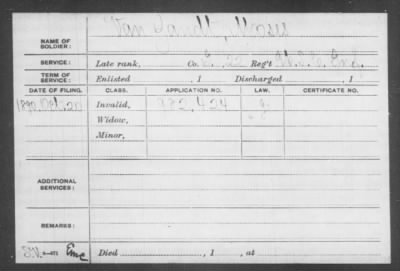 NAME OF SOLDIER: Van Zandt, Moses
SERVICE: Late rank, Co. E, 22 Reg't U.S.C. Inf.
TERM OF SERVICE: Enlisted , 1 Discharged , 1
DATE OF FILING. CLASS. APPLICATION NO. LAW. CERTIFICATE NO.
1890 Oct. 20 Invalid, 982.424
Widow,
Minor,
ADDITIONAL SERVICES:
REMARKS:
Died , 1 , at